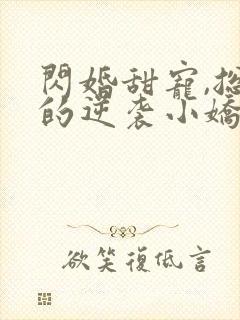 閃婚甜寵,總
的逆袭小嬌
欲笑復低言